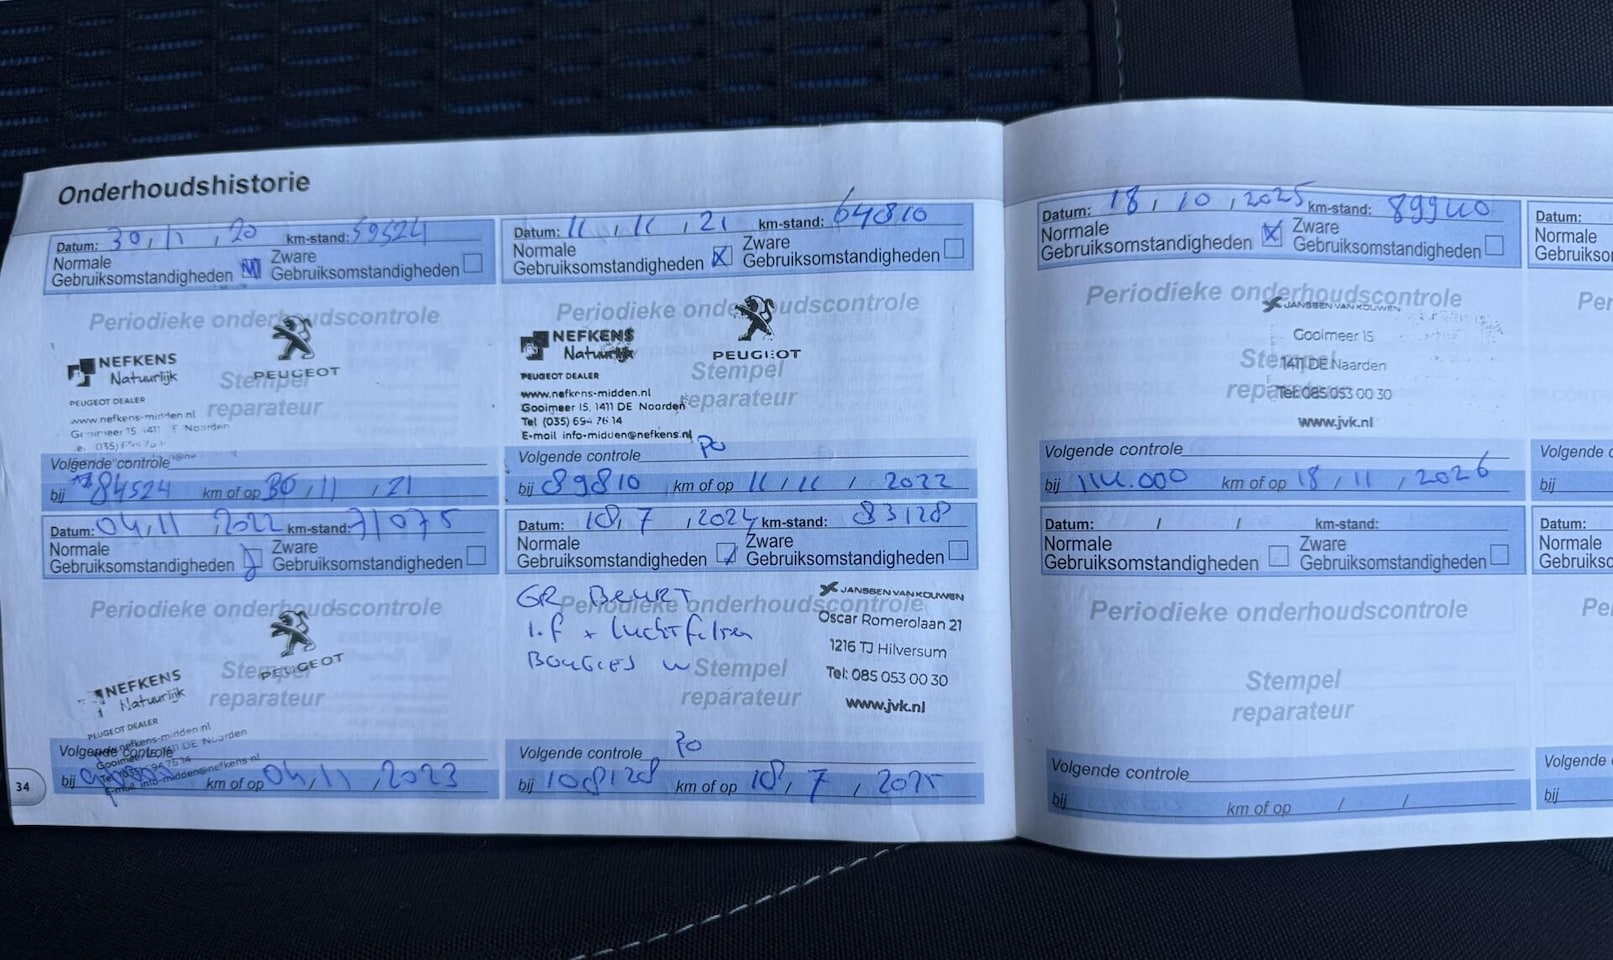 Onderhoudshistorie
Datum: 30 / 11 , 20 km-stand: 59524
Normale
Gebruiksomstandigheden
Zware
Gebruiksomstandigheden
Periodieke onderhoudscontrole
NEFKENS
Natuurlijk
PEUGEOT
PEUGEOT DEALER
www.nefkens-midden.nl
Stempel
reparateur
Volgende controle
bij 84524 km of op 30 / 11 , 21
Datum: 11 / 11 , 21 km-stand: 64810
Normale
Gebruiksomstandigheden
Zware
Gebruiksomstandigheden
Periodieke onderhoudscontrole
NEFKENS
Natuurlijk
PEUGEOT
PEUGEOT DEALER
www.nefkens-midden.nl
Gooimeer 15, 1411 DE Naarden
Tel (035) 694 76 14
E-mail info-midden@nefkens.nl
Stempel
reparateur
Volgende controle
bij 89810 km of op 11 / 11 / 2022
Datum: 04 , 11 , 2022 km-stand: 71075
Normale
Gebruiksomstandigheden
Zware
Gebruiksomstandigheden
Periodieke onderhoudscontrole
PEUGEOT
NEFKENS
Natuurlijk
PEUGEOT DEALER
Stempel
reparateur
Volgende controle
bij km of op 04 / 11 , 2023
Datum: 18 , 7 , 2024 km-stand: 83128
Normale
Gebruiksomstandigheden
Zware
Gebruiksomstandigheden
Periodieke onderhoudscontrole
GR BEURT
I.F + LUCHTFILTER
BOUGIES
JANSSEN VAN KOUWEN
Oscar Romerolaan 21
1216 TJ Hilversum
Tel: 085 053 00 30
www.jvk.nl
Stempel
reparateur
Volgende controle
bij 108128 km of op 18 / 7 , 2025
34
Datum: 18 , 10 , 2025 km-stand: 89940
Normale
Gebruiksomstandigheden
Zware
Gebruiksomstandigheden
Periodieke onderhoudscontrole
JANSSEN VAN KOUWEN
Gooimeer 15
1411 DE Naarden
Tel: 085 053 00 30
www.jvk.nl
Stempel
Volgende controle
bij 114.000 km of op 18 / 11 , 2026
Datum: / / km-stand:
Normale
Gebruiksomstandigheden
Zware
Gebruiksomstandigheden
Periodieke onderhoudscontrole
Stempel
reparateur
Volgende controle
bij km of op / /
Datum:
Normale
Gebruikso
Per
Volgende c
bij
Datum:
Normale
Gebruiksc
Pe
Volgende
bij